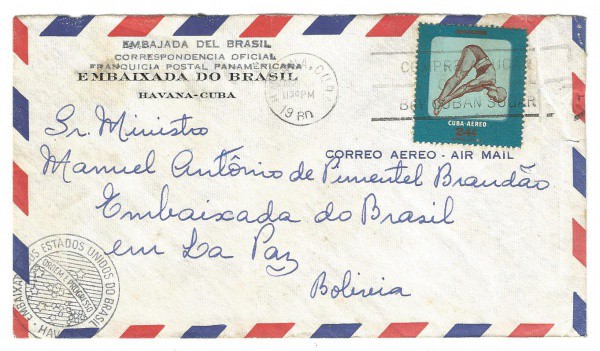 EMBAJADA DEL BRASIL
CORRESPONDENCIA OFICIAL
FRANQUICIA POSTAL PANAMERICANA
EMBAIXADA DO BRASIL
HAVANA-CUBA
CUBA
PM
1960
COMPRE
BUY CUBAN SUGAR
CUBA-AEREO
CORREO AEREO - AIR MAIL
Sr. Ministro
Manuel Antônio de Pimentel Brandão
Embaixada do Brasil
em La Paz
Bolivia
ESTADOS UNIDOS DO BRASIL
ORDEM E PROGRESSO